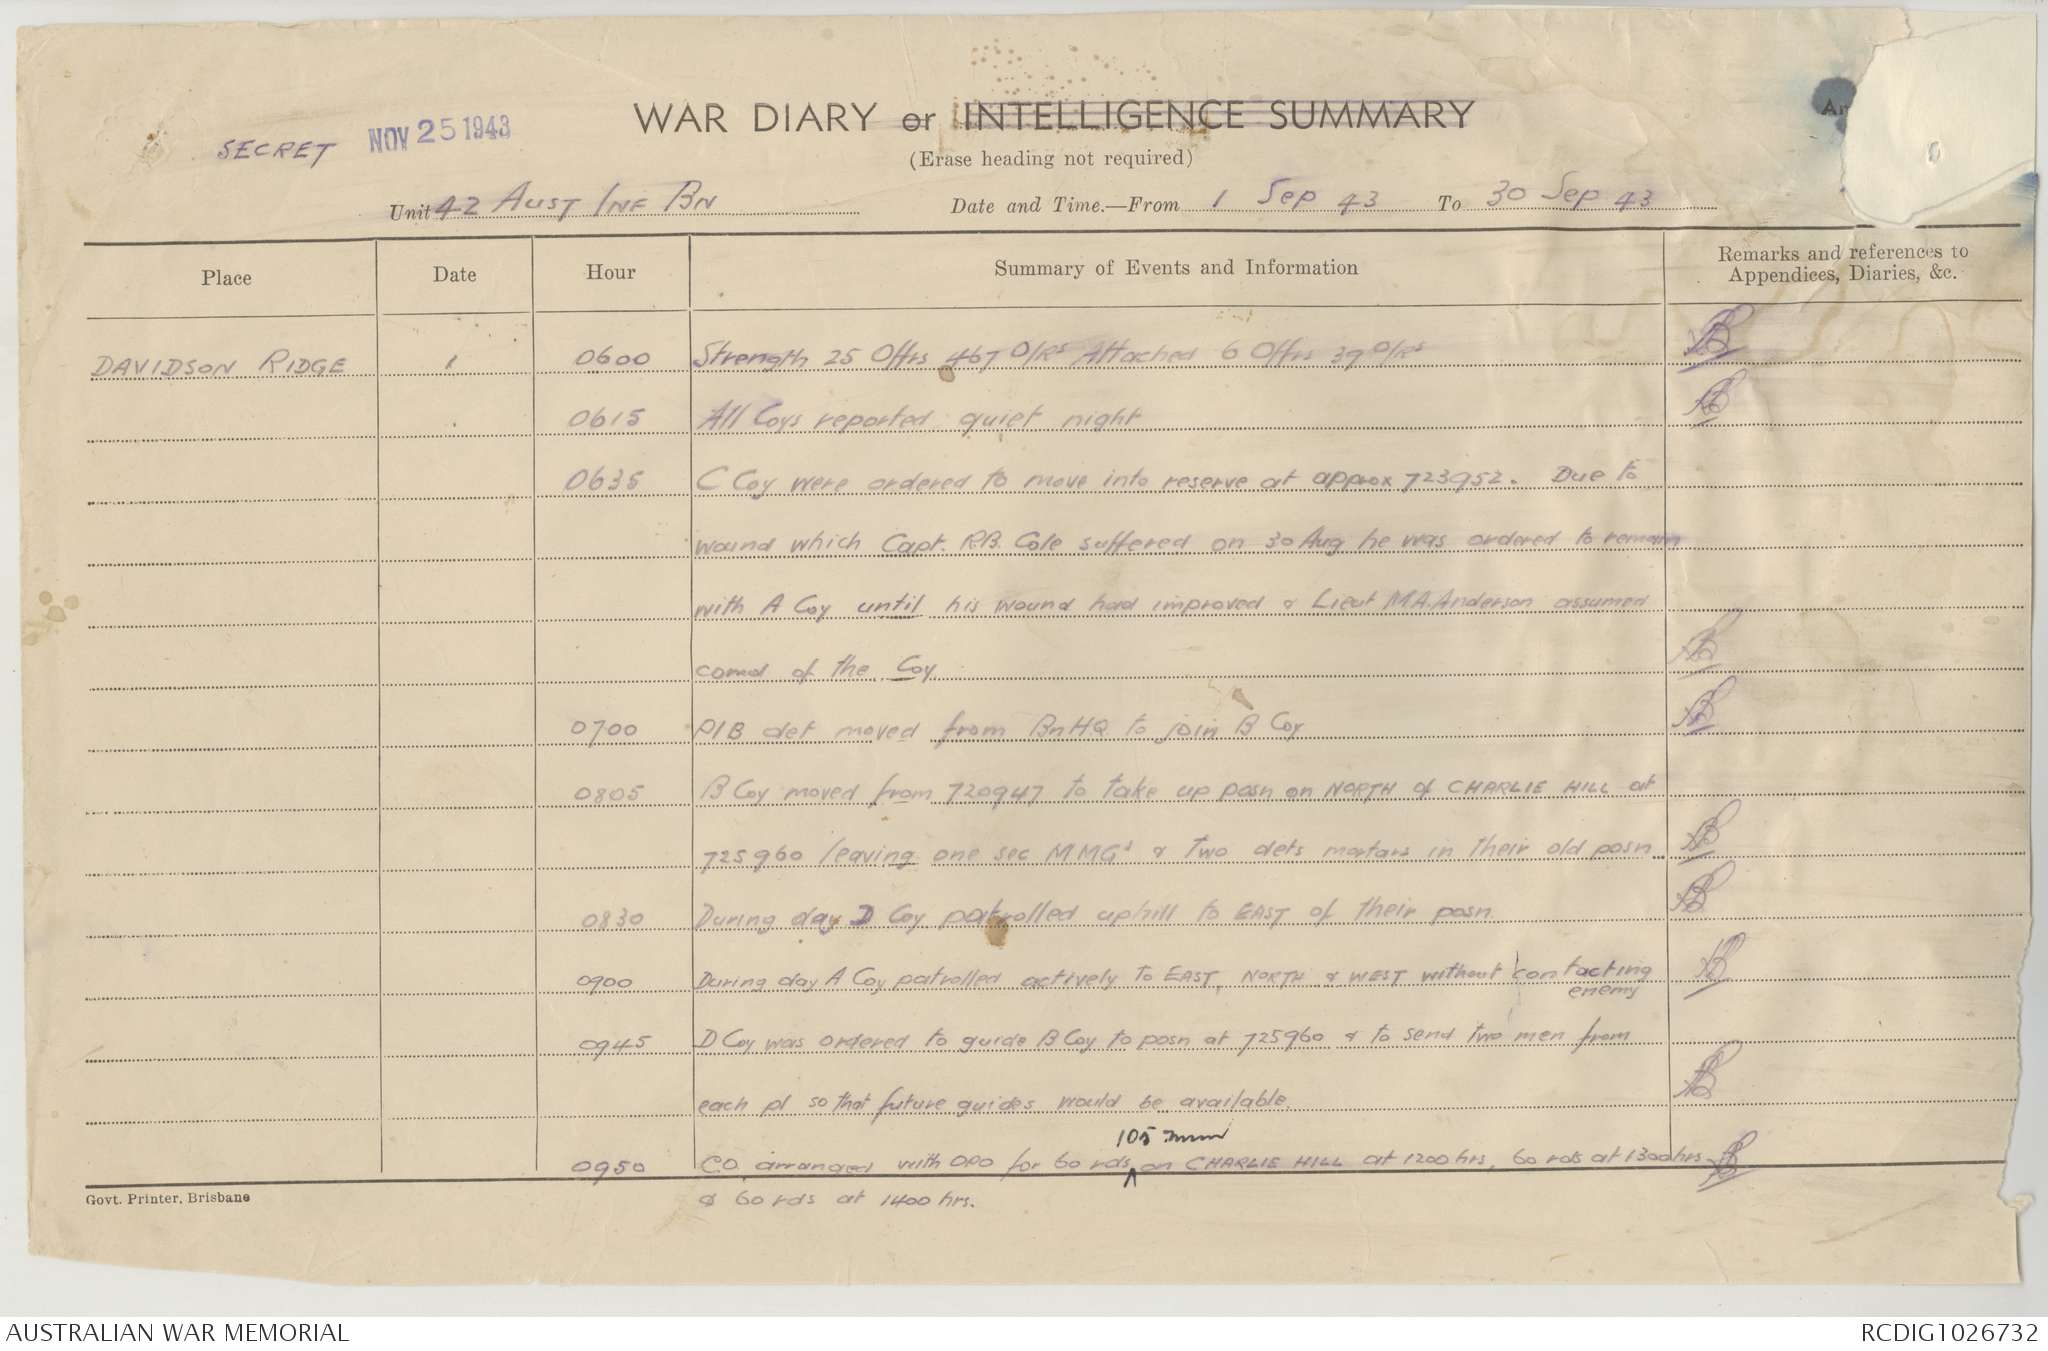 SECRET
NOV 25 1943
WAR DIARY or INTELLIGENCE SUMMARY
(Erase heading not required)
Unit 42 AUST INF BN Date and Time.—From 1 Sep 43 To 30 Sep 43
Place Date Hour Summary of Events and Information Remarks and references to
Appendices, Diaries, &c.
DAVIDSON RIDGE 1 0600 Strength 25 Offrs 467 O/Rs Attached 6 Offrs 39 O/Rs
0615 All Coys reported quiet night
0635 C Coy were ordered to move into reserve at approx 723952. Due to
wound which Capt. R.B. Cole suffered on 30 Aug he was ordered to remain
with A Coy until his wound had improved & Lieut M.A. Anderson assumed
comd of the Coy
0700 PIB det moved from Bn HQ to join B Coy
0805 B Coy moved from 720947 to take up posn on NORTH of CHARLIE HILL at
725960 leaving one sec MMGs & two dets mortars in their old posn
0830 During day D Coy patrolled uphill to EAST of their posn
0900 During day A Coy patrolled actively to EAST, NORTH & WEST without contacting
enemy
0945 D Coy was ordered to guide B Coy to posn at 725960 & to send two men from
each pl so that future guides would be available.
105 mm
0950 CO. arranged with OPO for 60 rds on CHARLIE HILL at 1200 hrs, 60 rds at 1300 hrs
& 60 rds at 1400 hrs.
Govt. Printer, Brisbane
AUSTRALIAN WAR MEMORIAL RCDIG1026732